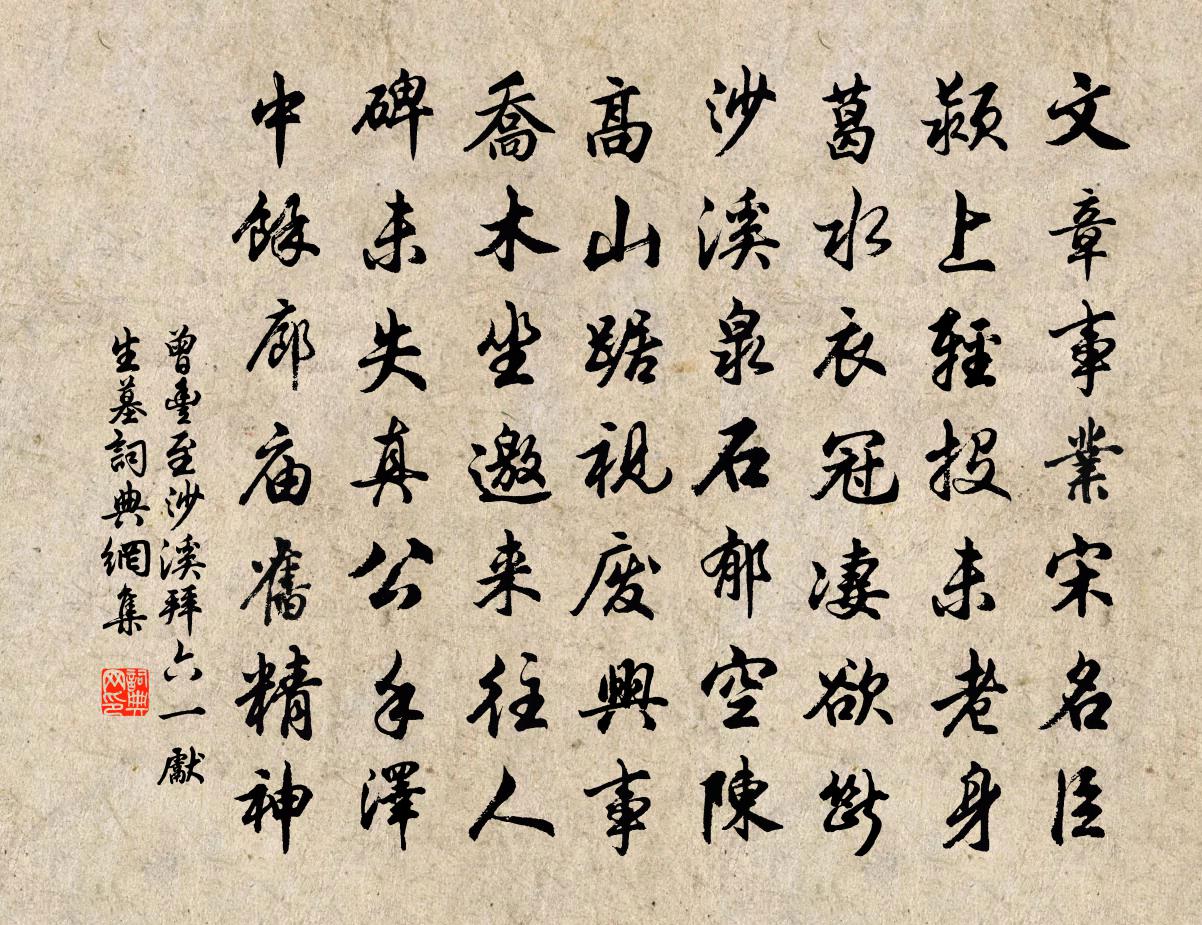 文章事業宋名臣
潁上輕投未老身
葛水衣冠凄欲斷
沙溪泉石郁空陳
高山踞視废興事
喬木坐邀来往人
碑未失真公手澤
中餘廊庙舊精神
曾豐至沙溪拜六一
生墓詞典網集
詞典网印